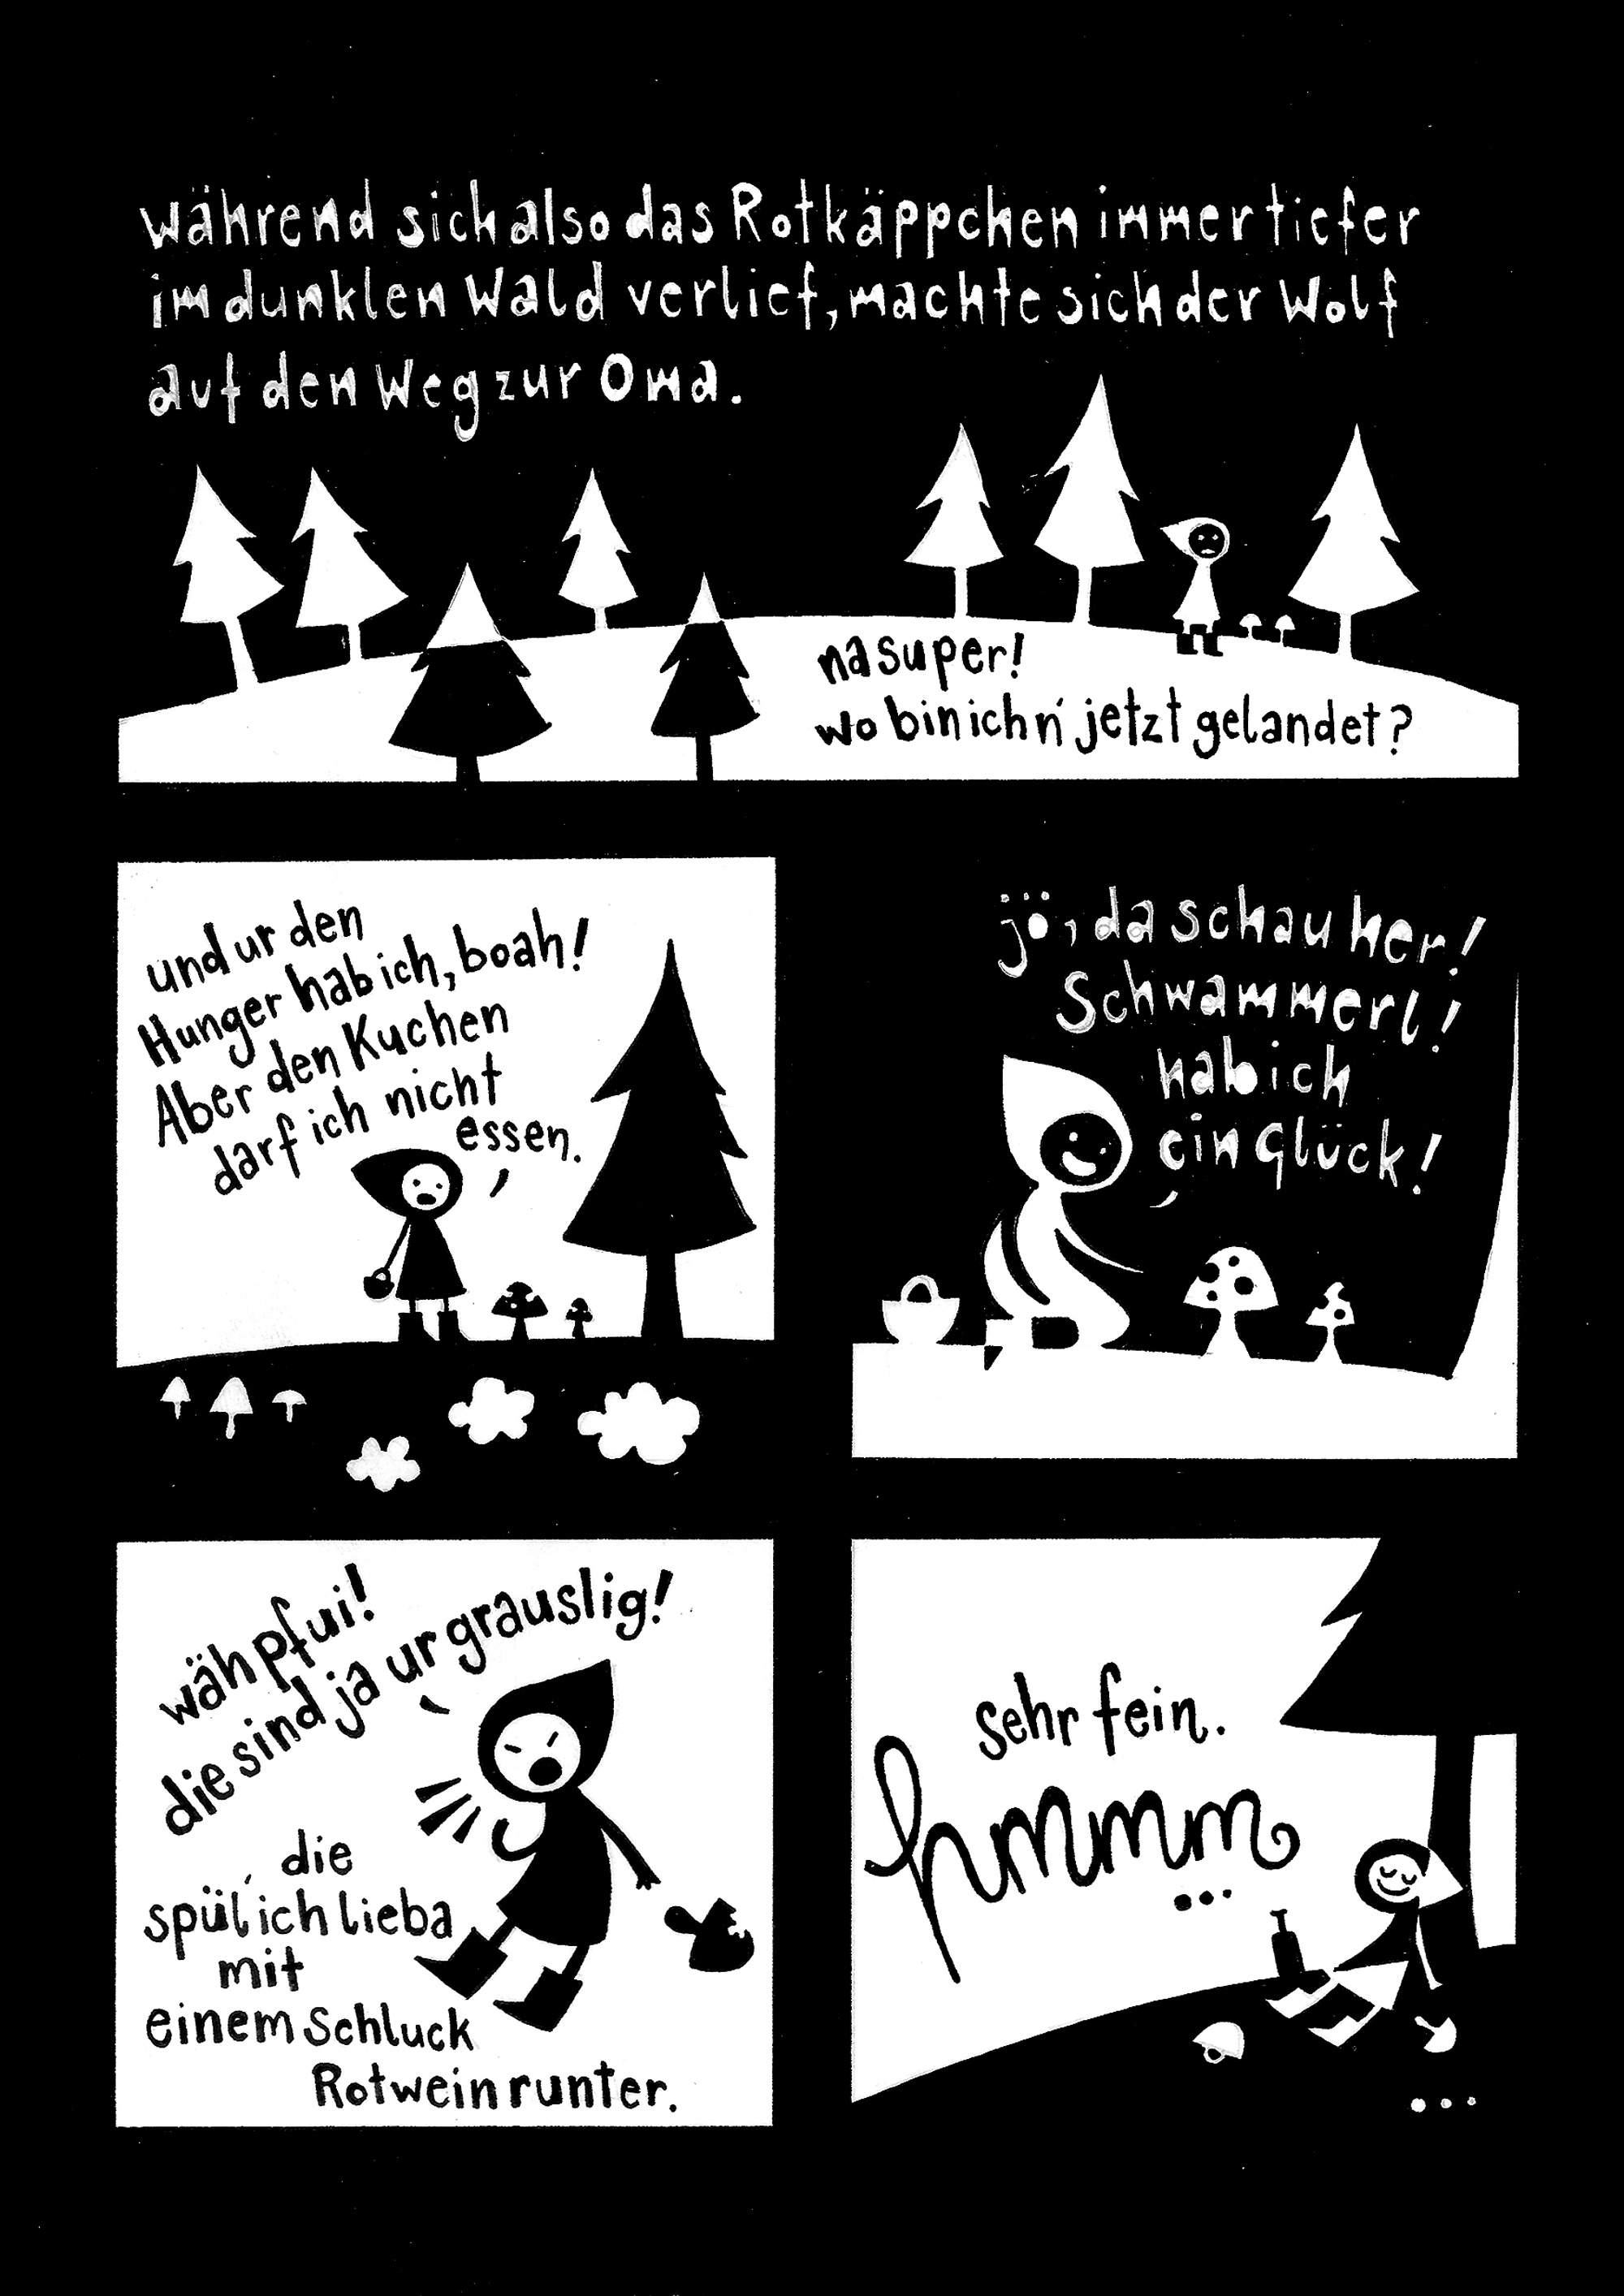 während sich also das Rotkäppchen immer tiefer
im dunklen Wald verlief, machte sich der Wolf
auf den Weg zur Oma.
na super!
wo bin ich n' jetzt gelandet?
und ur den
Hunger hab ich, boah!
Aber den Kuchen
darf ich nicht
essen.
jö, da schau her!
Schwammerl!
hab ich
ein Glück!
wäh pfui!
die sind ja ur grauslig!
die
spül' ich lieba
mit
einem Schluck
Rotwein runter.
sehr fein.
hmmmm
...
...